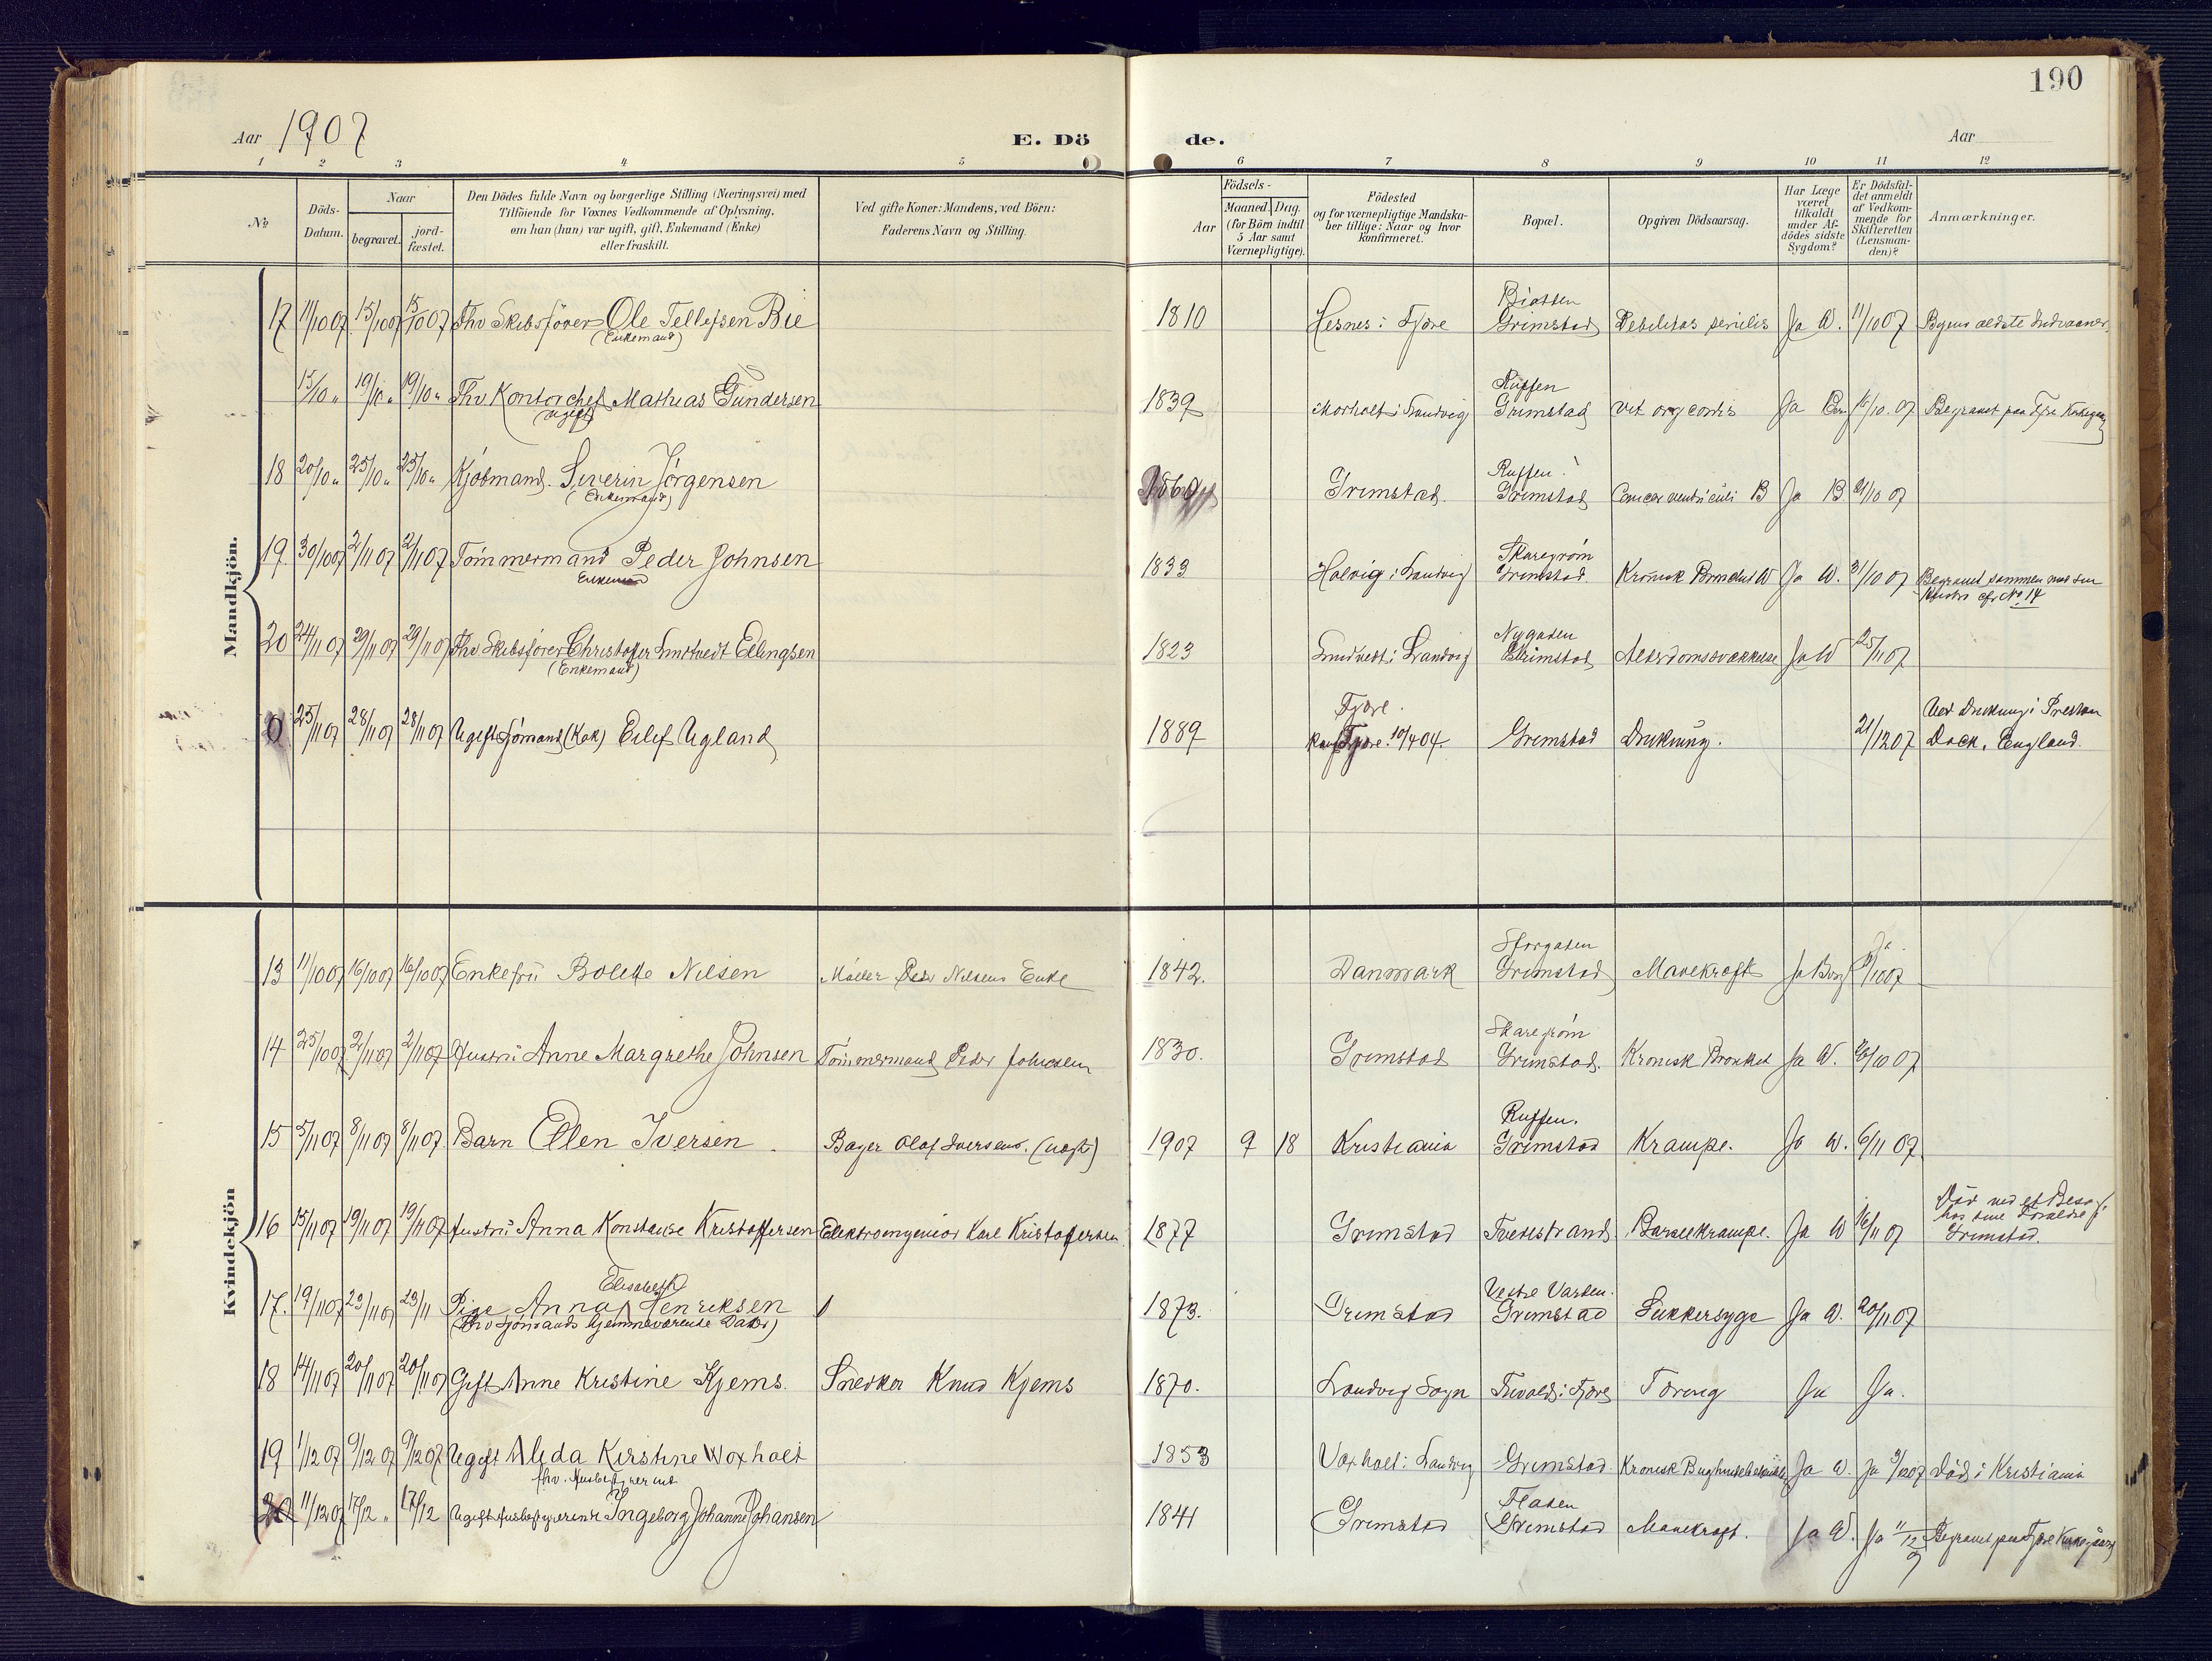 190
Aar 1907
E. Dö
de.
Aar
1 2 3 4 5 6 7 8 9 10 11 12
No
Döds-
Datum.
Naar
begravet.
jord-
fæstet.
Den Dödes fulde Navn og borgerlige Stilling (Næringsvei) med
Tilföiende for Voxnes Vedkommende af Oplysning,
om han (hun) var ugift, gift, Enkemand (Enke)
eller fraskilt.
Ved gifte Koner: Mandens, ved Börn:
Faderens Navn og Stilling.
Födsels-
Aar
Maaned. Dag.
(for Börn indtil
5 Aar samt
Værnepligtige).
Födested
og for værnepligtige Mandska-
ber tillige: Naar og hvor
konfirmeret.
Bopæl.
Opgiven Dödsaarsag.
Har Læge
været
tilkaldt
under Af-
dödes sidste
Sygdom?
Er Dödsfal-
det anmeldt
af Vedkom-
mende for
Skifteretten
(Lensman-
den)?
Anmærkninger.
Mandkjön.
17 11/10 07 15/10 07 15/10 07 Fhv Skibsfører Ole Tellefsen Bie 1810 Hesnes i Fjære Biotten
(Enkemand) Grimstad Debilitas senilis Ja W. 11/10 07 Byens ældste Indvaaner
15/10 " 19/10 " 19/10 " Fhv Kontorchef Mathias Gundersen 1839 Morholt i Landvig Ruffen
(ugift) Grimstad vit org cordis Ja 16/10 07 Begravet paa Fjære Kirkegaard
18 20/10 " 25/10 " 25/10 " Kjøbmand. Severin Jörgensen Grimstad. Ruffen
(Enkemand) Grimstad Cancer ventriculi B Ja B 21/10 07
19. 30/10 07 2/11 07 2/11 07 Tömmermand Peder Johnsen 1833 Holvig i Landvig Skaregrøm
Enkemand Grimstad. Kronisk Bronchit W Ja W. 31/10 07 Begravet sammen med sin
Hustru cfr No 14
20 24/11 07 29/11 07 29/11 07 Fhv Skibsfører Christofer Smstvedt Ellingsen 1823 i Landvig Nygaden
(Enkemand) Grimstad Alderdomssvækkelse Ja W 25/11 07
25/11 07 28/11 07 28/11 07 Ugift Sjömand (Kok) Eilef Ugland 1889 Fjære.
Konf Fjære 10/4 04. Grimstad Drukning. 21/12 07 Ved Drukning i Preston
Dock, England.
Kvindekjön
13 11/10 07 16/10 07 16/10 07 Enkefru Bolette Nilsen Møller Peder Nilsens Enke 1842. Danmark Storgaten
Grimstad Mavekræft Ja Ja
14 25/10 07 2/11 07 2/11 07 Hustru Anne Margrethe Johnsen Tömmermand Peder Johnsen 1830. Grimstad Skaregrøm
Grimstad. Kronisk Bronkit Ja W. 26/10 07
15 5/11 07 8/11 07 8/11 07 Barn Ellen Iversen. Bager Olaf Iversens. 1907 9 18 Kristiania Ruffen.
Grimstad Krampe. Ja W. 6/11 07
16 15/11 07 19/11 07 19/11 07 Hustru Anna Konstanse Kristoffersen Elektroingeniør Karl Kristofersen 1877 Grimstad Tvedestrand Barselkrampe. Ja W 16/11 07 Død ved et Besøg
hos sine Forældre i
Grimstad.
17. 19/11 07 23/11 07 23/11 Pige Anna Elisabeth Henriksen 1873. Grimstad Vestre Varden.
(Fhv Sjömands hjemmeværende Datter) Grimstad Sukkersyge Ja W. 20/11 07
18 14/11 07 20/11 07 20/11 07 Gift Anne Kristine Kjems. Snedker Knud Kjems 1870. Landvig Sogn i Fjære Tæring Ja Ja.
19 1/12 07 9/12 07 9/12 07 Ugift Alida Kirstine Woxholt 1853 Voxholt i Landvig Grimstad. Kronisk Ja W. Ja 3/12 07 Død i Kristiania
fhv. Husbestyrerinde
20 11/12 07 17/12 " 17/12 Ugift Husbestyrerinde Ingeborg Johanne Johansen 1841 Grimstad Flaten
Grimstad Mavekræft. Ja W. Ja 11/12 7 Begravet paa Fjære Kirkegaard